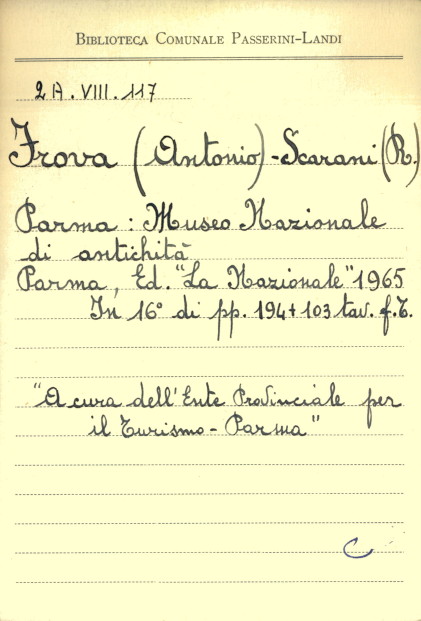 BIBLIOTECA COMUNALE PASSERINI-LANDI
2A.VIII.117
Frova (Antonio)-Scarani (R.)
Parma : Museo Nazionale
di antichità
Parma, Ed. "La Nazionale" 1965
In 16° di pp. 194+103 tav. f.t.
"A cura dell'Ente Provinciale per
il Turismo - Parma"
C